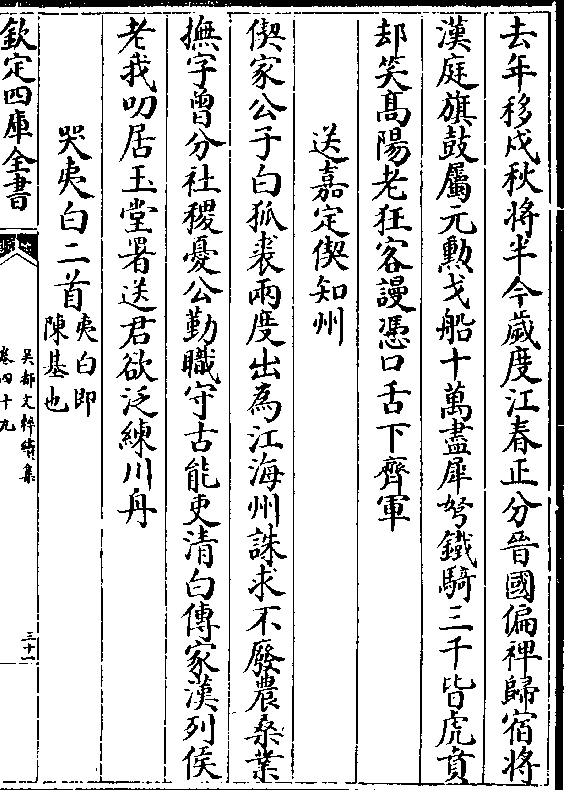 去年移戍秋將半今歲度江春正分晉國偏裨歸宿將
漢庭旗鼓屬元勲戈船十萬盡犀弩鐵騎三千皆虎賁
却笑髙陽老狂客謾憑口舌下齊軍
送嘉定偰知州
偰家公子白狐裘兩度出為江海州誅求不廢農桑業
撫字曾分社稷憂公勤職守古能吏清白傳家漢列侯
老我叨居玉堂署送君欲泛練川舟
哭夷白二首夷白即陳基也
欽定四庫全書
吳都文粹續集
卷四十九
三十一